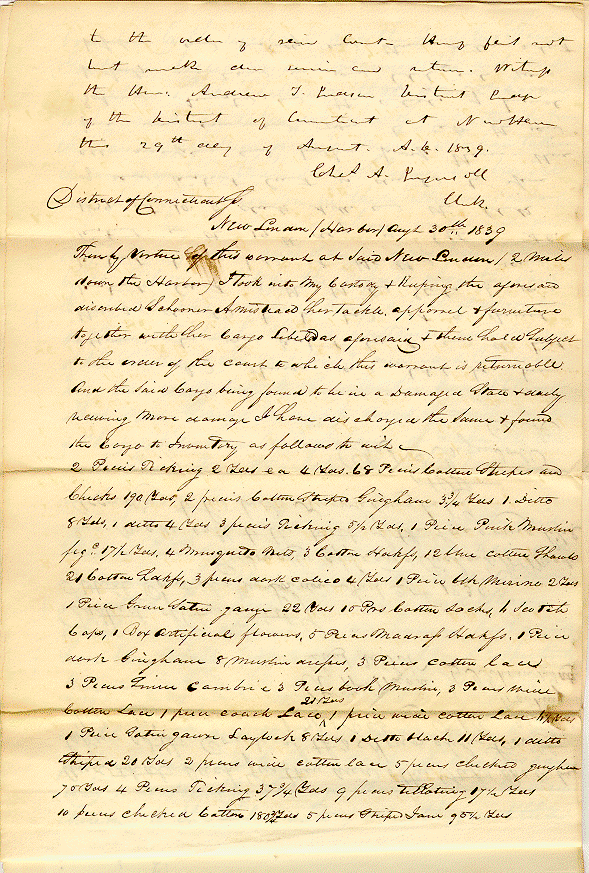 to the order of said Court. Hereof fail not
but make due service and return. Witness
the Hon. Andrew T. Judson District Judge
of the District of Connecticut at New Haven
this 29th day of August. A.D. 1839.
Chas A. Ingersoll
Clk.
District of Connecticut Ss
New London (Harbor) Augt 30th 1839
Then by Virtue of this warrant at Said New London (2 Miles
down the Harbor) I took into My Custody & Keeping the aforesaid
discribed Schooner Amistead her tackle apparrel & furniture
together with her Cargo Libeled as aforesaid & them hold Subject
to the order of the court to which this warrant is returnable
And the Said Cargo being found to be in a Damaged State & daily
receiving More damage I have discharged the Same & found
the Cargo to Inventory as follows to wit
2 Peices Ticking 2 Yds ea 4 Yds. 68 Peices Cotton Stripes and
Checks 190 Yds, 2 peices Cotton Striped Gingham 3¾ Yds 1 Ditto
8 Yds, 1 ditto 4 Yds 3 peices Ticking 5½ Yds, 1 Peice Pink Muslin
figd. 17½ Yds, 4 Musquito Nets, 3 Cotton Hdkfs, 12 blue cotton Shawls
21 Cotton Hdkfs, 3 peices dark calico 4 Yds 1 Peice blk Merino 2 Yds
1 Peice Green Satin gauze 22 Yds 10 Prs Cotton Socks, 6 Scotch
Caps, 1 Box artificial flowers, 5 Peices Madrass Hdkfs. 1 Peice
dark Gingham 8 Muslin dresses, 3 Peices cotton laces
3 Peices Linnen Cambric 3 Peices book Muslin, 3 Peices wide
Cotton Lace 1 peice coach Lace 21 Yds, 1 peice wide cotton Lace Yds
1 Peice Satin gauze Laylock 8 Yds 1 Ditto black 11 Yds, 1 ditto
Striped 20 Yds 2 peices wide cotton lace 5 peices checked gingham
70 Yds 4 Peices Ticking 37¾ Yds 9 peices 17½ Yds
10 peices checked Cotton Yds 5 peices Striped Jane 95½ Yds